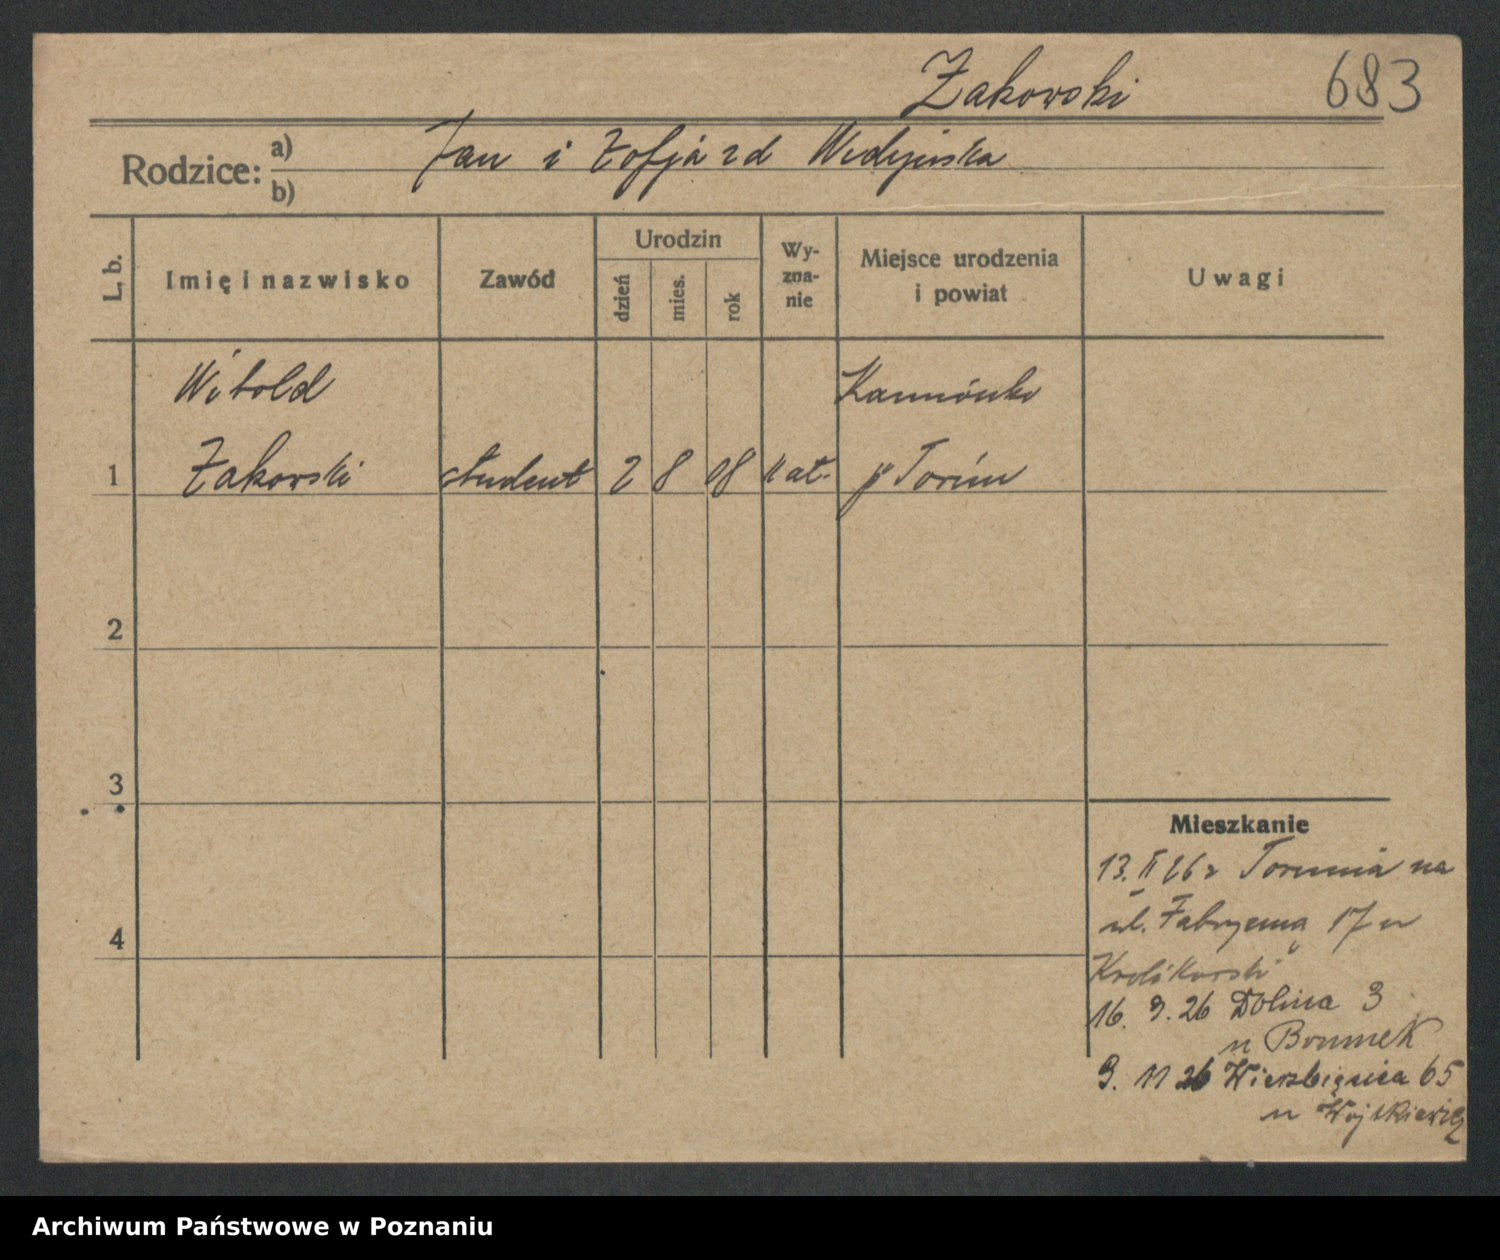 Żakowski 683
Rodzice: a) Jan i Zofja zd
b)
L. b. Imię i nazwisko Zawód Urodzin dzień mies. rok Wy-zna-nie Miejsce urodzenia i powiat Uwagi
Witold
1 Żakowski student 2 8 08 kat. p Toruń
2
3
Mieszkanie
13. II 26 z Torunia na
ul. Fabryczną 17 u
4
Krolikowski
16. 9. 26 Dolina 3
u
9. 11 26 Wierzbięcice 65
u Wojtkiewicz
Archiwum Państwowe w Poznaniu